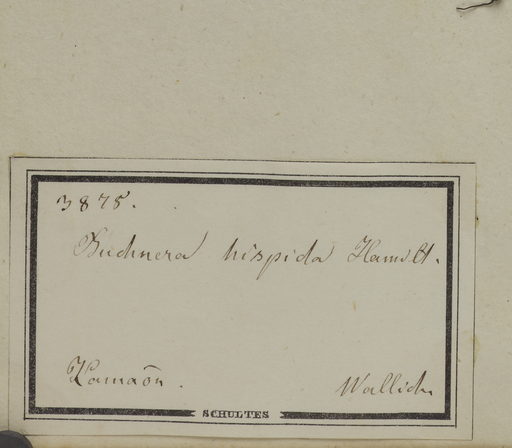 3875.
Buchnera hispida Hamilt.
Kamaōn.
Wallich
SCHULTES